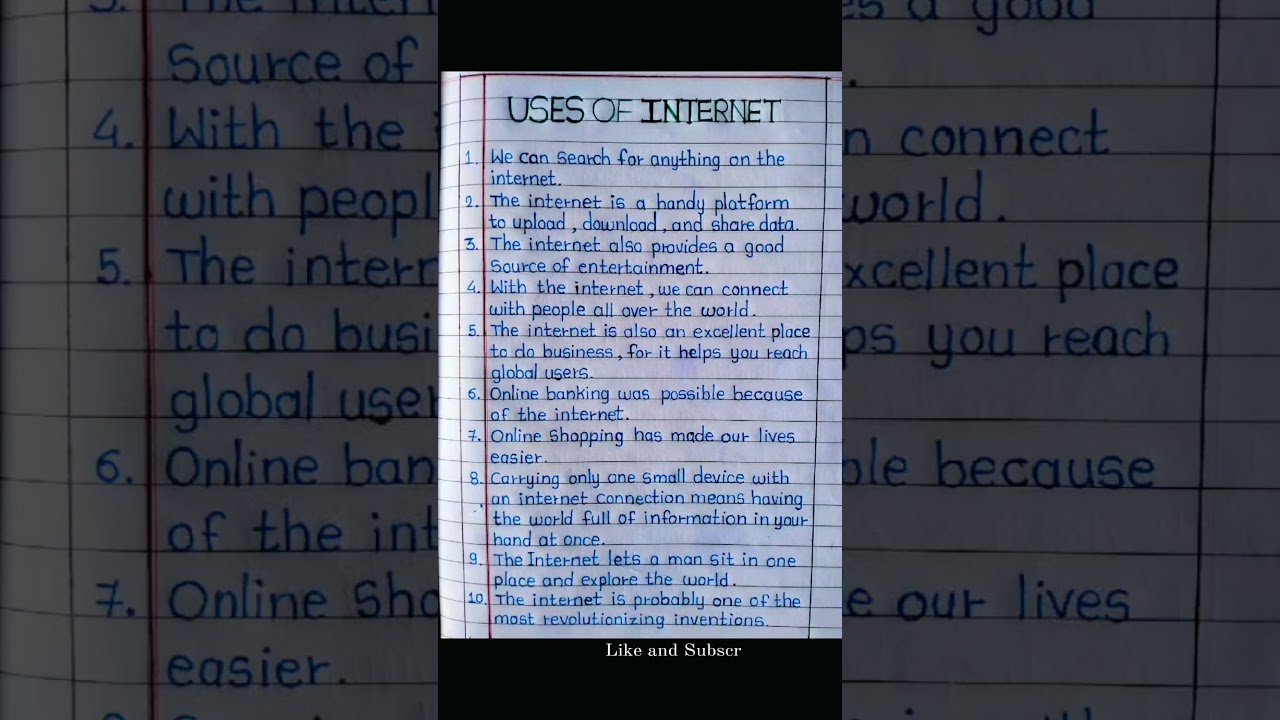 USES OF INTERNET
1. We can search for anything on the
internet.
2. The internet is a handy platform
to upload, download, and share data.
3. The internet also provides a good
source of entertainment.
4. With the internet, we can connect
with people all over the world.
5. The internet is also an excellent place
to do business, for it helps you reach
global users.
6. Online banking was possible because
of the internet.
7. Online shopping has made our lives
easier.
8. Carrying only one small device with
an internet connection means having
the world full of information in your
hand at once.
9. The Internet lets a man sit in one
place and explore the world.
10. The internet is probably one of the
most revolutionizing inventions.
Like and Subscr
Source of
4. With the
n connect
with peopl
world.
5. The intern
xcellent place
to do busi
ps you reach
global user
6. Online ban
ble because
of the int
7. Online Sho
e our lives
easier.